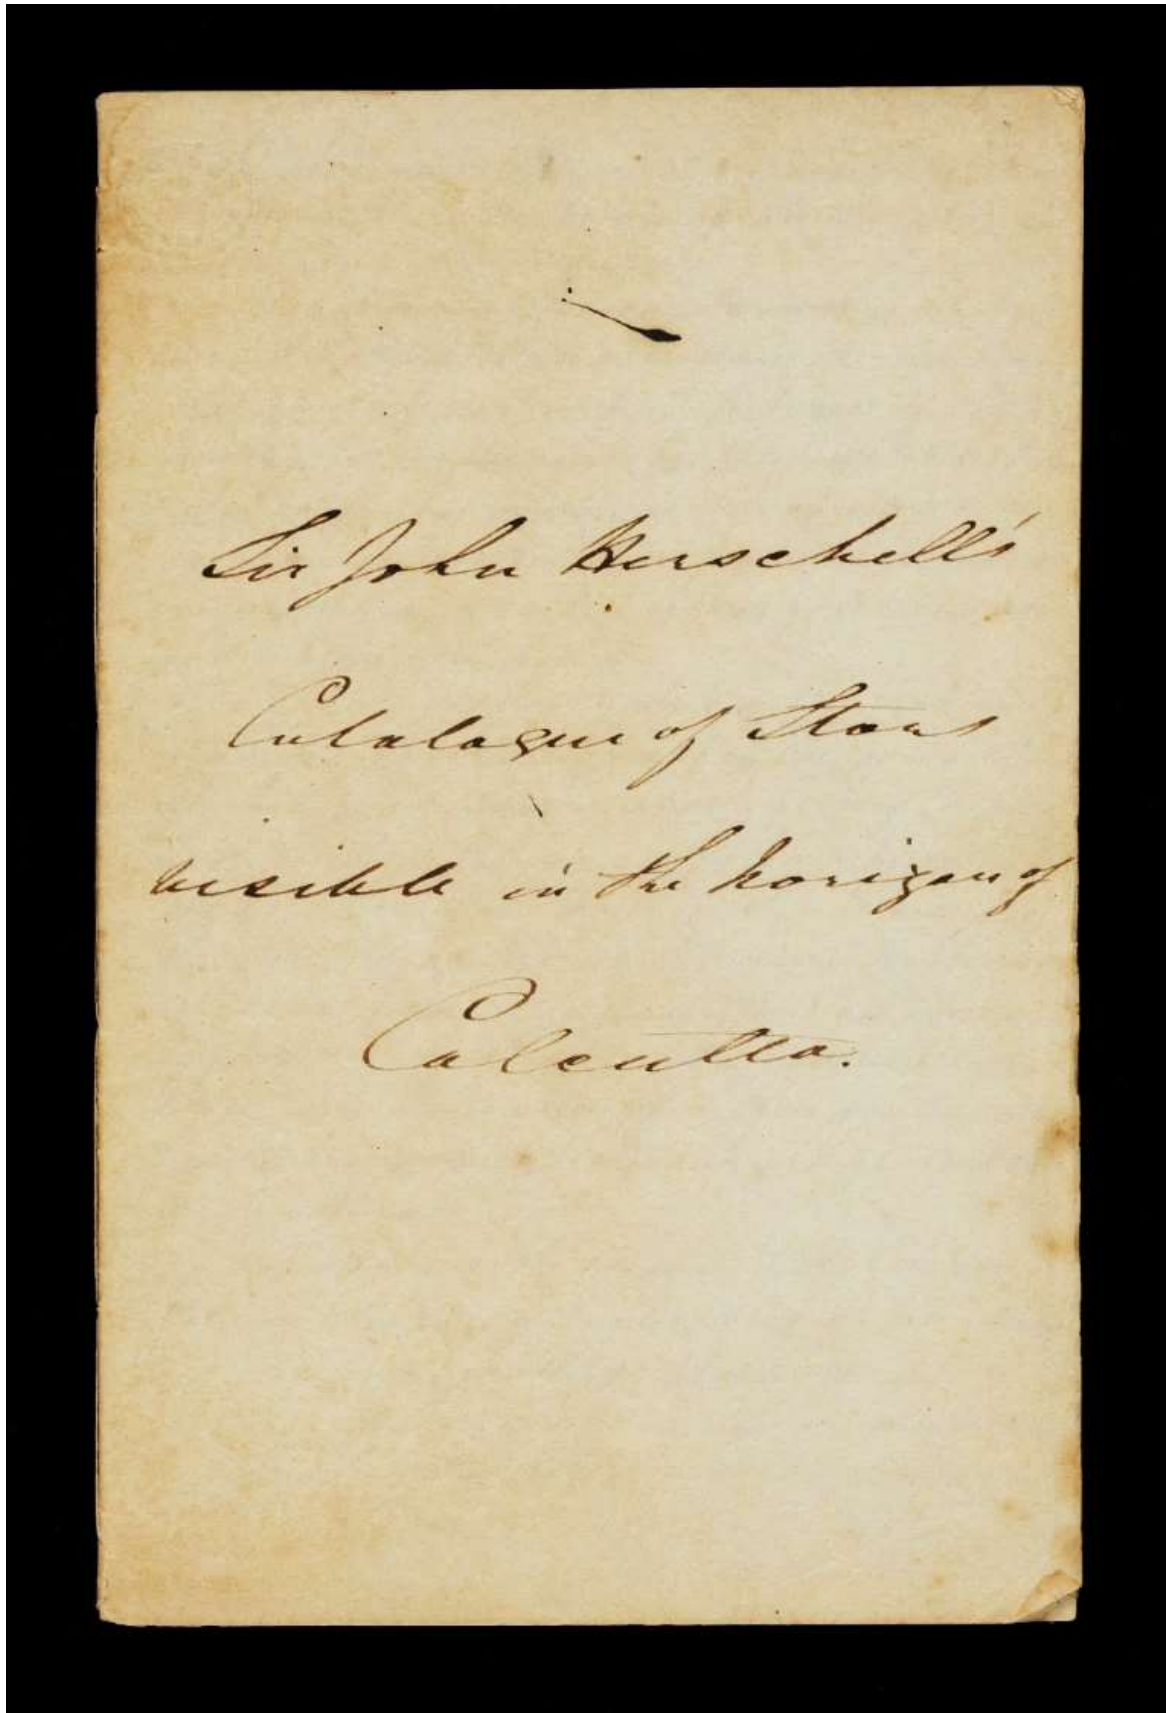 Sir John Herschell's
Catalogue of Stars
visible in the horizon of
Calcutta.